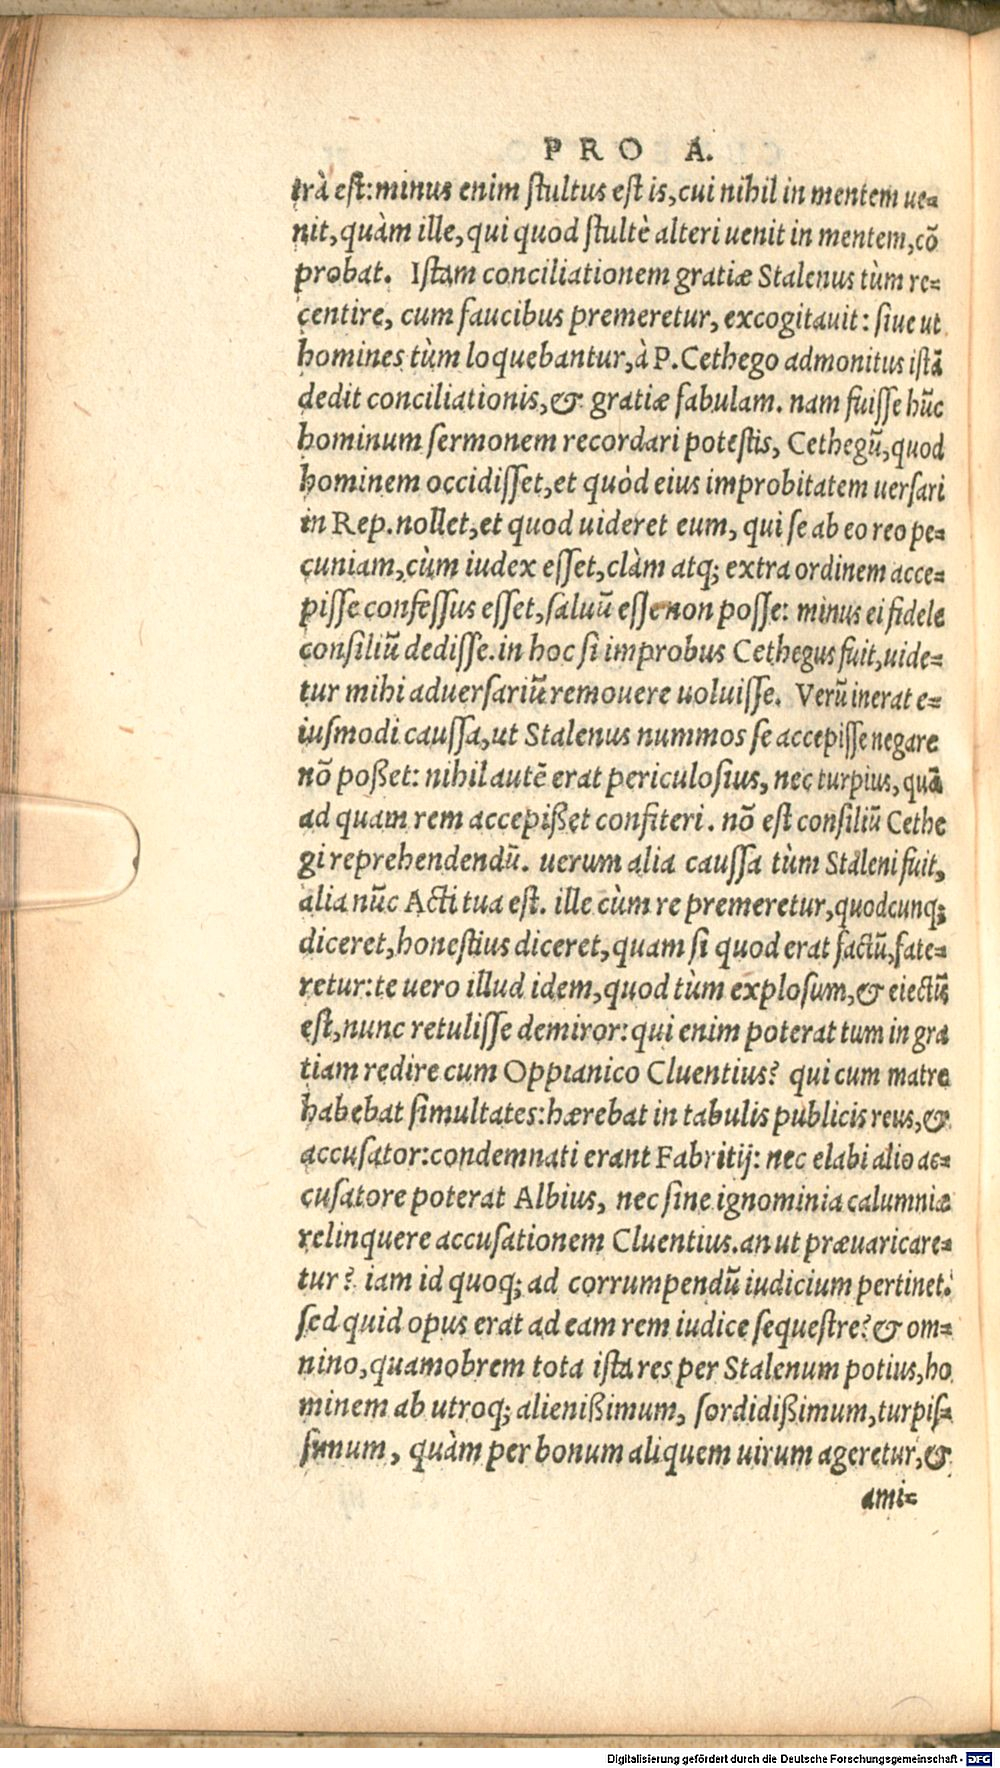 PRO A.
trà est: minus enim stultus est is, cui nihil in mentem ue-
nit, quàm ille, qui quod stultè alteri uenit in mentem, cō
probat. Istam conciliationem gratiæ Stalenus tùm re-
centire, cum faucibus premeretur, excogitauit: siue ut
homines tùm loquebantur, à P. Cethego admonitus istā
dedit conciliationis, & gratiæ fabulam. nam fuisse hūc
hominum sermonem recordari potestis, Cethegū, quod
hominem occidisset, et quòd eius improbitatem uersari
in Rep. nollet, et quod uideret eum, qui se ab eo reo pe-
cuniam, cùm iudex esset, clàm atq; extra ordinem acce-
pisse confessus esset, saluū esse non posse: minus ei fidele
consiliū dedisse. in hoc si improbus Cethegus fuit, uide-
tur mihi aduersariū remouere uoluisse. Verū inerat e-
iusmodi caussa, ut Stalenus nummos se accepisse negare
nō poßet: nihil autē erat periculosius, nec turpius, quā
ad quam rem accepißet confiteri. nō est consiliū Cethe
gi reprehendendū. uerum alia caussa tùm Staleni fuit,
alia nūc Acti tua est. ille cùm re premeretur, quodcunq;
diceret, honestius diceret, quam si quod erat factū, fate-
retur: te uero illud idem, quod tùm explosum, & eiectū
est, nunc retulisse demiror: qui enim poterat tum in gra
tiam redire cum Oppianico Cluentius? qui cum matre
habebat simultates: hærebat in tabulis publicis reus, &
accusator: condemnati erant Fabritij: nec elabi alio ac-
cusatore poterat Albius, nec sine ignominia calumniæ
relinquere accusationem Cluentius. an ut præuaricare-
tur? iam id quoq; ad corrumpendū iudicium pertinet.
sed quid opus erat ad eam rem iudice sequestre? & om-
nino, quamobrem tota ista res per Stalenum potius, ho
minem ab utroq; alienißimum, sordidißimum, turpis-
simum, quàm per bonum aliquem uirum ageretur, &
ami-
Digitalisierung gefördert durch die Deutsche Forschungsgemeinschaft - DFG